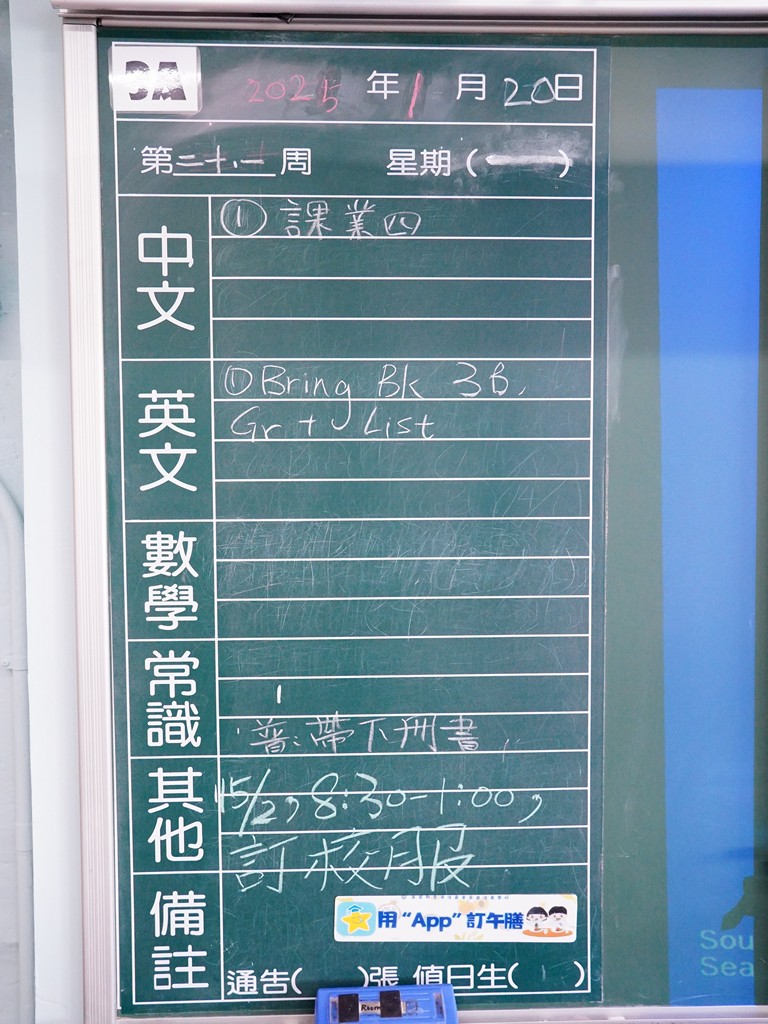 3A 2025年1月20日
第二十一周 星期(一)
中文
① 課業四
英文
① Bring Bk 3B,
Gr + List
數學
常識
普:帶下冊書
其他
15/2, 8:30-1:00,
訂校服
備註
用“App”訂午膳
通告( )張 值日生( )
Room
Sou
Sea